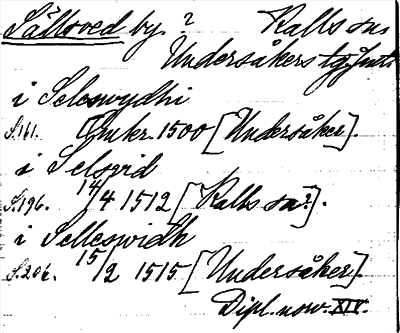 Sällsved by? Kalls sn
Undersåkers tg Jmtl
i Seleswydhi
S. 161. Omkr. 1500 [Undersåker].
i Selsvid
S. 196. 14/4 1512 [Kalls sn].
i Sellesvidh
S. 206. 15/2 1515 [Undersåker].
Dipl. norv. XIV.